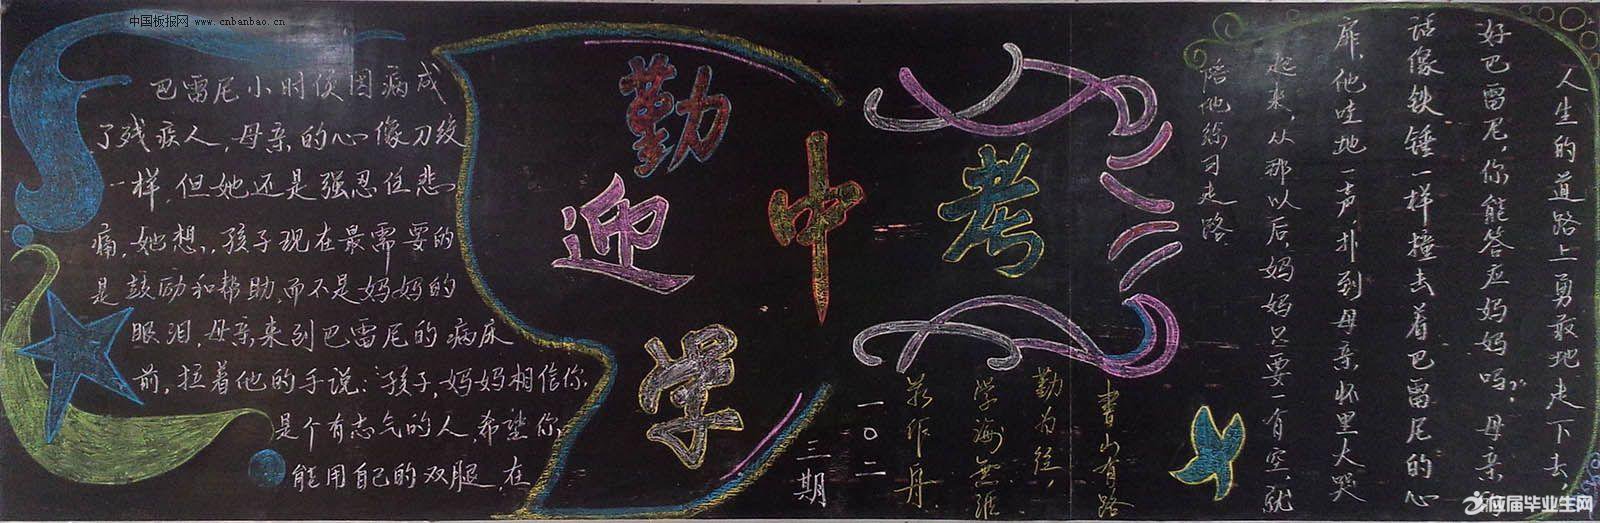 中国板报网 www.cnbanbao.cn
巴雷尼小时候因病成
了残疾人,母亲的心像刀绞
一样,但她还是强忍住悲
痛。她想,孩子现在最需要的
是鼓励和帮助,而不是妈妈的
眼泪,母亲来到巴雷尼的病床
前,拉着他的手说:“孩子,妈妈相信你
是个有志气的人,希望你
能用自己的双腿,在
人生的道路上勇敢地走下去,
好巴雷尼,你能答应妈妈吗?”母亲的
话像铁锤一样撞击着巴雷尼的心
扉,他哇地一声,扑到母亲怀里大哭
起来,从那以后,妈妈只要一有空,就
陪他练习走路
勤学
迎中考
书山有路
勤为径,
学海无涯
苦作舟
一〇二
三期
应届毕业生网